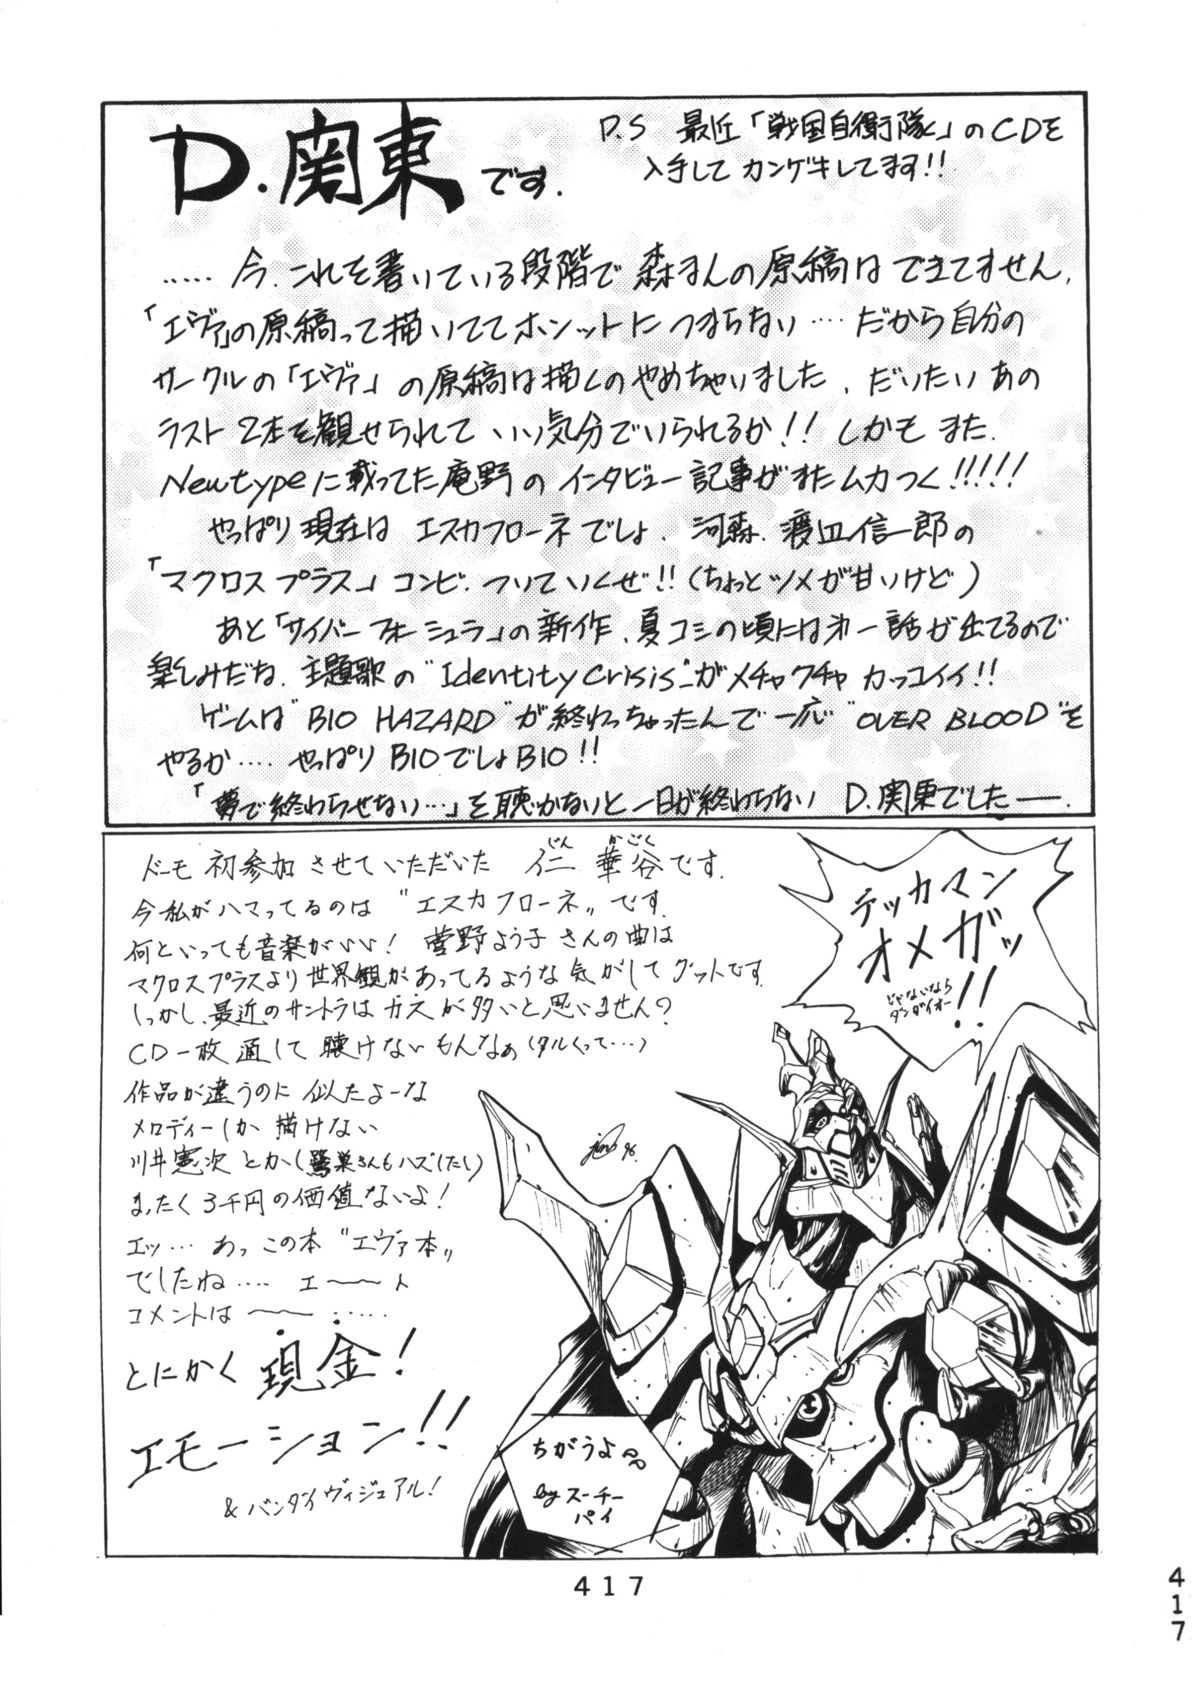 D.関東です.
P.S 最近「戦国自衛隊」のCDを
入手して カンゲキしてます!!
..... 今、これを書いている段階で 森まんの原稿は できてません.
「エヴァ」の原稿って描いててホンットにつまらない…. だから自分の
サークルの「エヴァ」の原稿は描くのやめちゃいました. だいたい あの
ラスト 2本を観せられて いい気分でいられるか!! しかも また.
Newtypeに載ってた庵野の インタビュー記事がまたムカつく!!!!!
やっぱり現在は エスカフローネでしょ. 河森、渡辺信一郎の
「マクロスプラス」コンビ. ついていくぜ!! (ちょっとツメが甘いけど)
あと「サイバーフォーミュラ」の新作、夏コミの頃には第一話が出てるので
楽しみだね. 主題歌の"Identity Crisis"がメチャクチャ カッコイイ!!
ゲームは"BIO HAZARD"が終わっちゃったんで一応"OVER BLOOD"を
やるか.... やっぱりBIOでしょBIO!!
「夢で終わらせない…」を聴かないと一日が終わらない D.関東でした——.
ドーモ 初参加 させていただいた 仁 華谷です.
じん かごく
今私がハマってるのは "エスカフローネ" です.
何といっても音楽がいい! 菅野よう子さんの曲は
マクロスプラスより世界観があってるような気がしてグットです.
しっかし、最近のサントラはカスが多いと思いません?
CD一枚通して聴けないもんなぁ(タルくって…)
作品が違うのに似たよーな
メロディーしか描けない
川井憲次とかし(鷺巣さんもハズ(たし)
まったく3千円の価値ないよ!
エッ… あっ この本 "エヴァ本"
でしたね.... エ〜〜ト
コメントは〜〜 :....
とにかく 現金!
エモーション!!
& バンダイヴィジュアル!
テッカマン
オメガッ!!
じゃないなら
ダンガイオー
jin 96.
ちがうよ
by スーチー
パイ
417
417